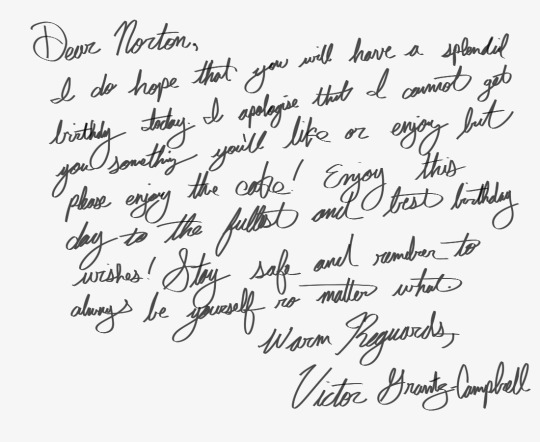 Dear Norton,
I do hope that you will have a splendid
birthdy today. I apologise that I cannot get
you something you'll like or enjoy but
please enjoy the cake! Enjoy this
day to the fullest and best birthday
wishes! Stay safe and remember to
always be yourself no matter what.
Warm Reguards,
Victor Grantz-Campbell